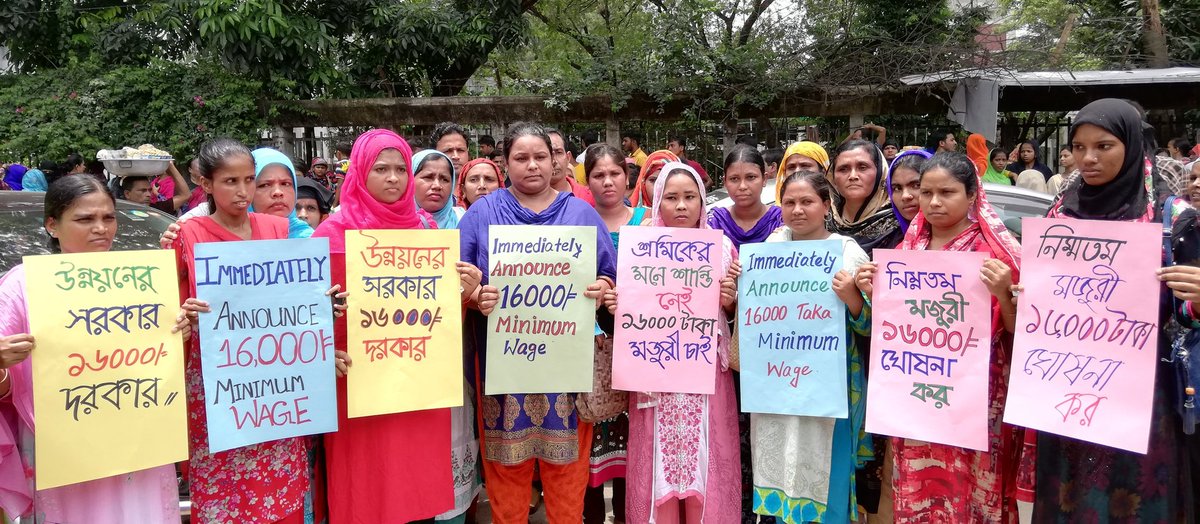 উন্নয়নের
সরকার
১৬০০০/-
দরকার //
IMMEDIATELY
ANNOUNCE
16,000/-
MINIMUM
WAGE
উন্নয়নের
সরকার
১৬০০০/-
দরকার
Immediately
Announce
16000/-
Minimum
Wage
শ্রমিকের
মনে শান্তি
নেই
১৬০০০ টাকা
মজুরী চাই
Immediately
Announce
16000 Taka
Minimum
Wage
নিম্নতম
মজুরী
১৬০০০/-
ঘোষনা
কর
নিম্নতম
মজুরী
১৬০০০ টাকা
ঘোষনা
কর